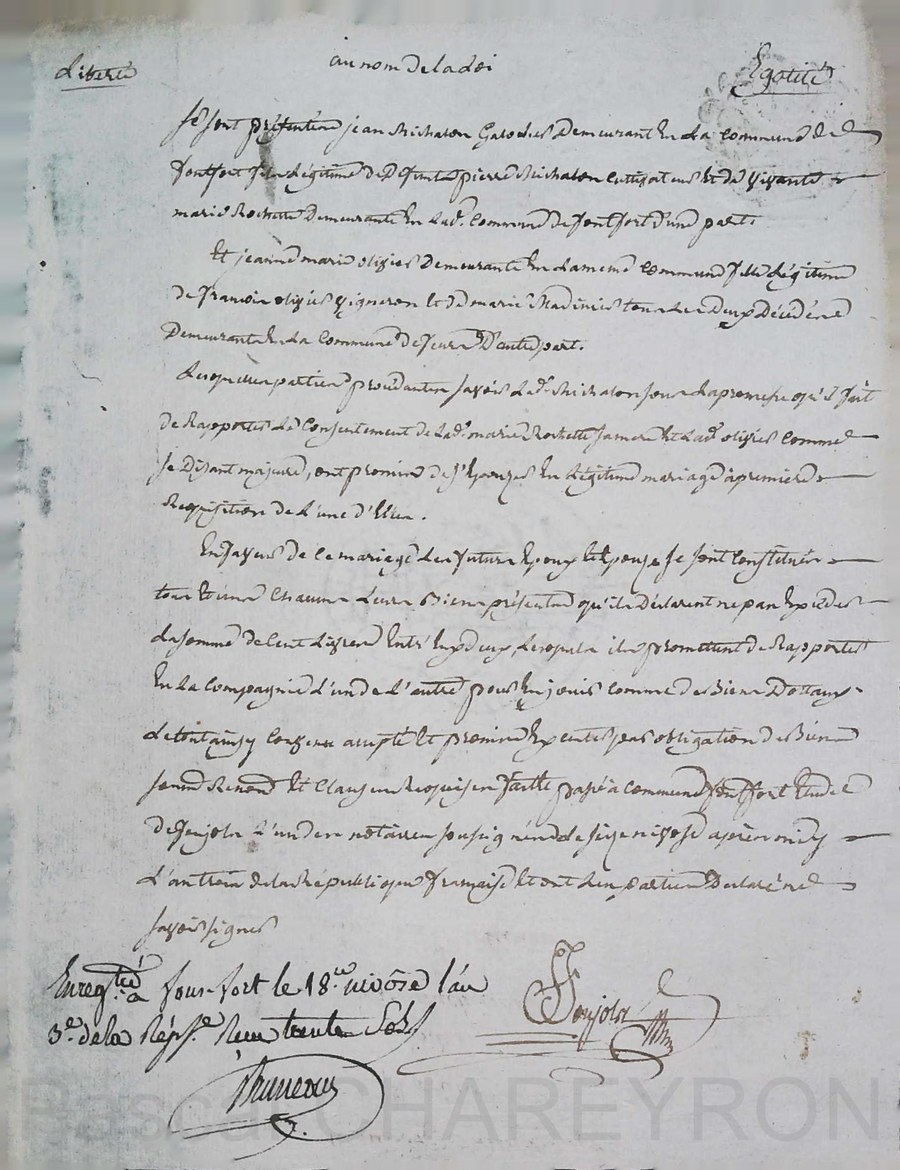 Liberté au nom de la Loi Egalité
Se sont présentés jean Michalon Galoches Demeurant En La Commune de
fontfort fils Légitime de Defunt pierre Michalon Cultivateur Et de vivante
marie Rochette Demeurante En Lad. Commune de fontfort d'une part
Et jeanne marie olivier Demeurante En La meme Commune fille Légitime
de francois olivier vigneron Et de marie tous Les Deux Décédés
Demeurants En La Commune de feurs D'autre part.
Lesquelles parties procédantes savoir Led. Michalon sous La promesse qu'il fait
de Rapporter Le Consentement de Lad. marie Rochette sa mere Et Lad. olivier Comme
se Disant majeure, ont promis de s'Epouzer En Légitime mariage a premiere
Requisition de L'une d'Elles.
En faveur de Ce mariage Les futurs Epoux Et Epouze se sont Constitués
tous Et uns Chacuns Leurs Biens présents qu'ils Déclarent ne pas Exceder
La somme de Cent Livres Entr'Eux deux, Lesquels ils promettent de Rapporter
En La Compagnie L'un de L'autre pour En jouir Comme de Biens Dotaux
Le tout ainsy Convenu accepté Et promis Exécuter par obligation de Biens
soumis Renoncé Et Clauses Requises fait Et passé a Commune fontfort Etude
de Poujola L'un des notaires soussignés Le seize nivose après midy
L'an trois de La République française Et ont Les parties Declaré ne
savoir signer
Enregtré a fonfort le 18 nivôse l'an
3e de la Répe Reçu trente Sols
Poujola
Bruneau
Pascal CHAREYRON